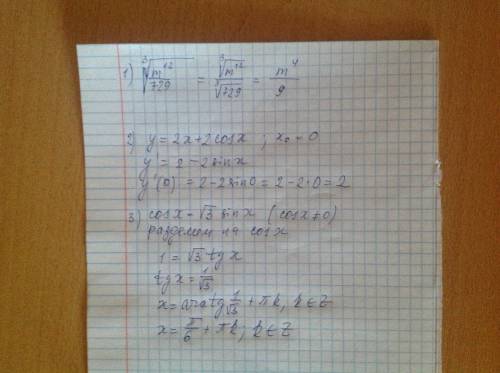 1) ∛(m¹²/729) = ∛m¹²/∛729 = m⁴/9
2) y = 2x + 2cosx ; x₀ = 0
y' = 2 - 2sinx
y'(0) = 2 - 2sin0 = 2 - 2·0 = 2
3) cosx = √3 sinx (cosx ≠ 0)
разделем на cosx
1 = √3 tgx
tgx = 1/√3
x = arctg 1/√3 + πk, k ∈ Z
x = π/6 + πk; k ∈ Z